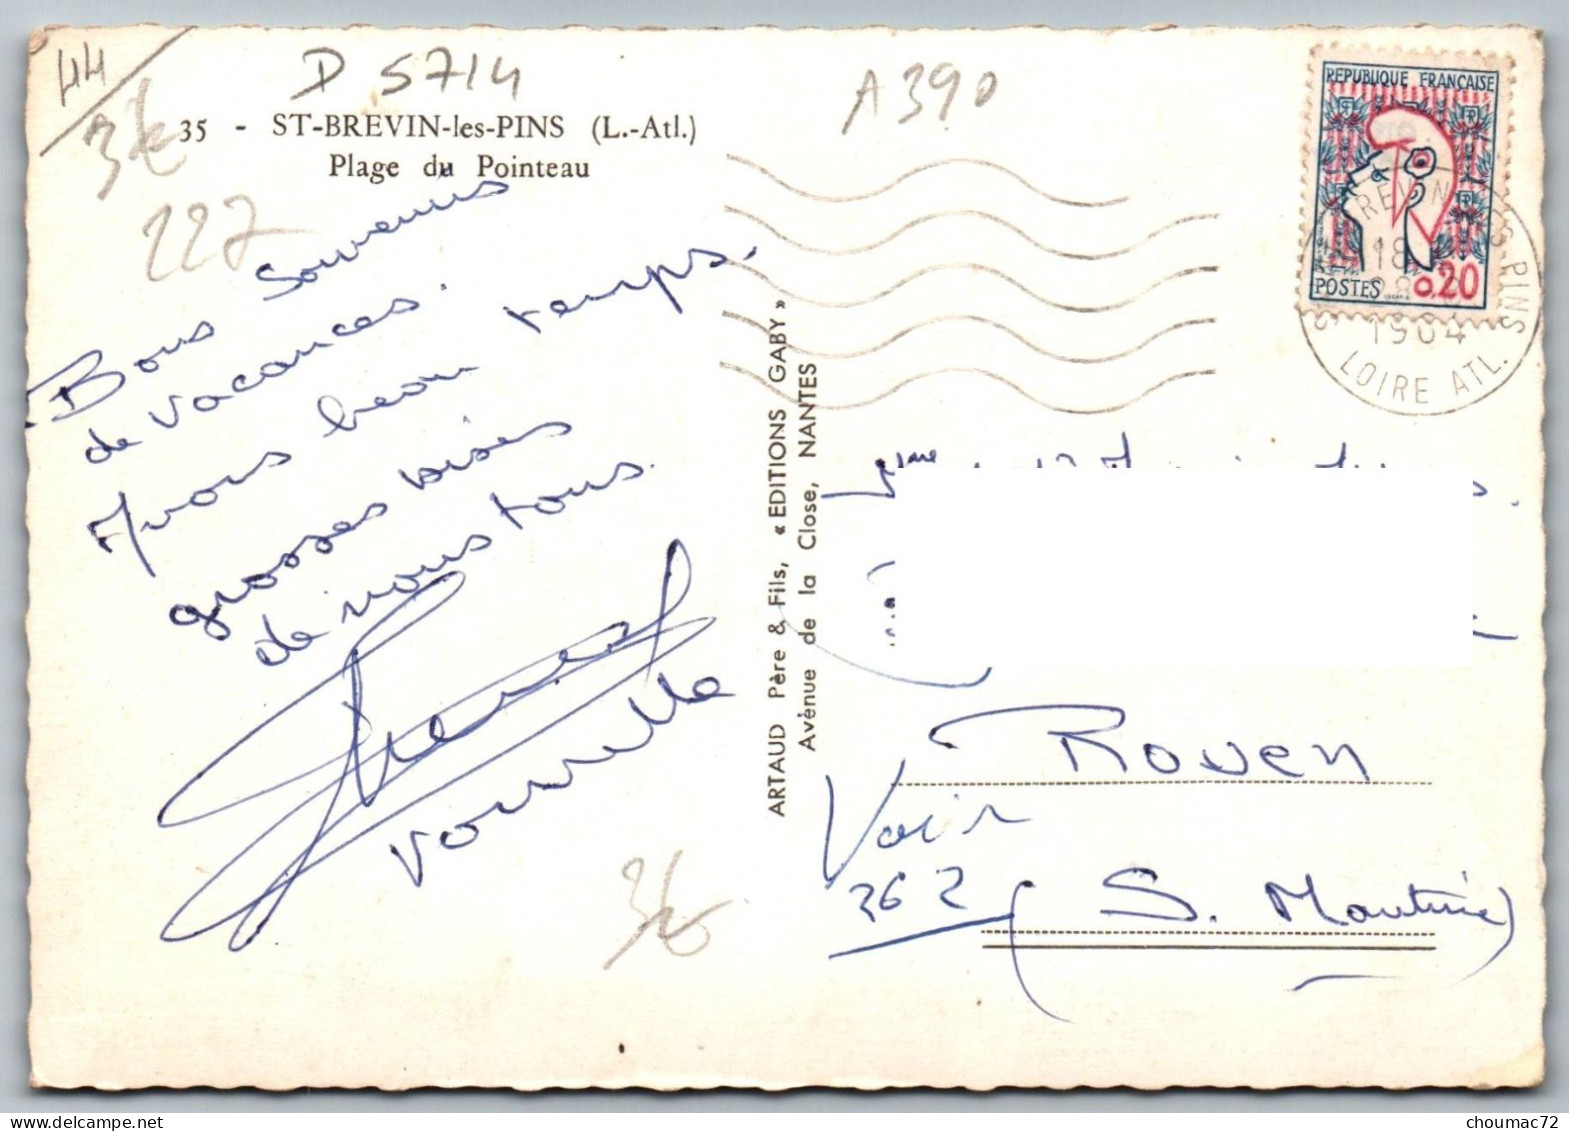 44
D 5714
A390
3€
35 - ST-BREVIN-les-PINS (L.-Atl.)
Plage du Pointeau
227
Bons Souvenirs
de vacances.
Avons beau temps.
grosses bises
de nous tous
3€
ARTAUD Père & Fils, « EDITIONS GABY »
Avenue de la Close, NANTES
REPUBLIQUE FRANÇAISE
POSTES 0,20
BREVIN LES PINS
18
1964
LOIRE ATL.
Rouen
Voir
362
(S. Maritime)
choumac72